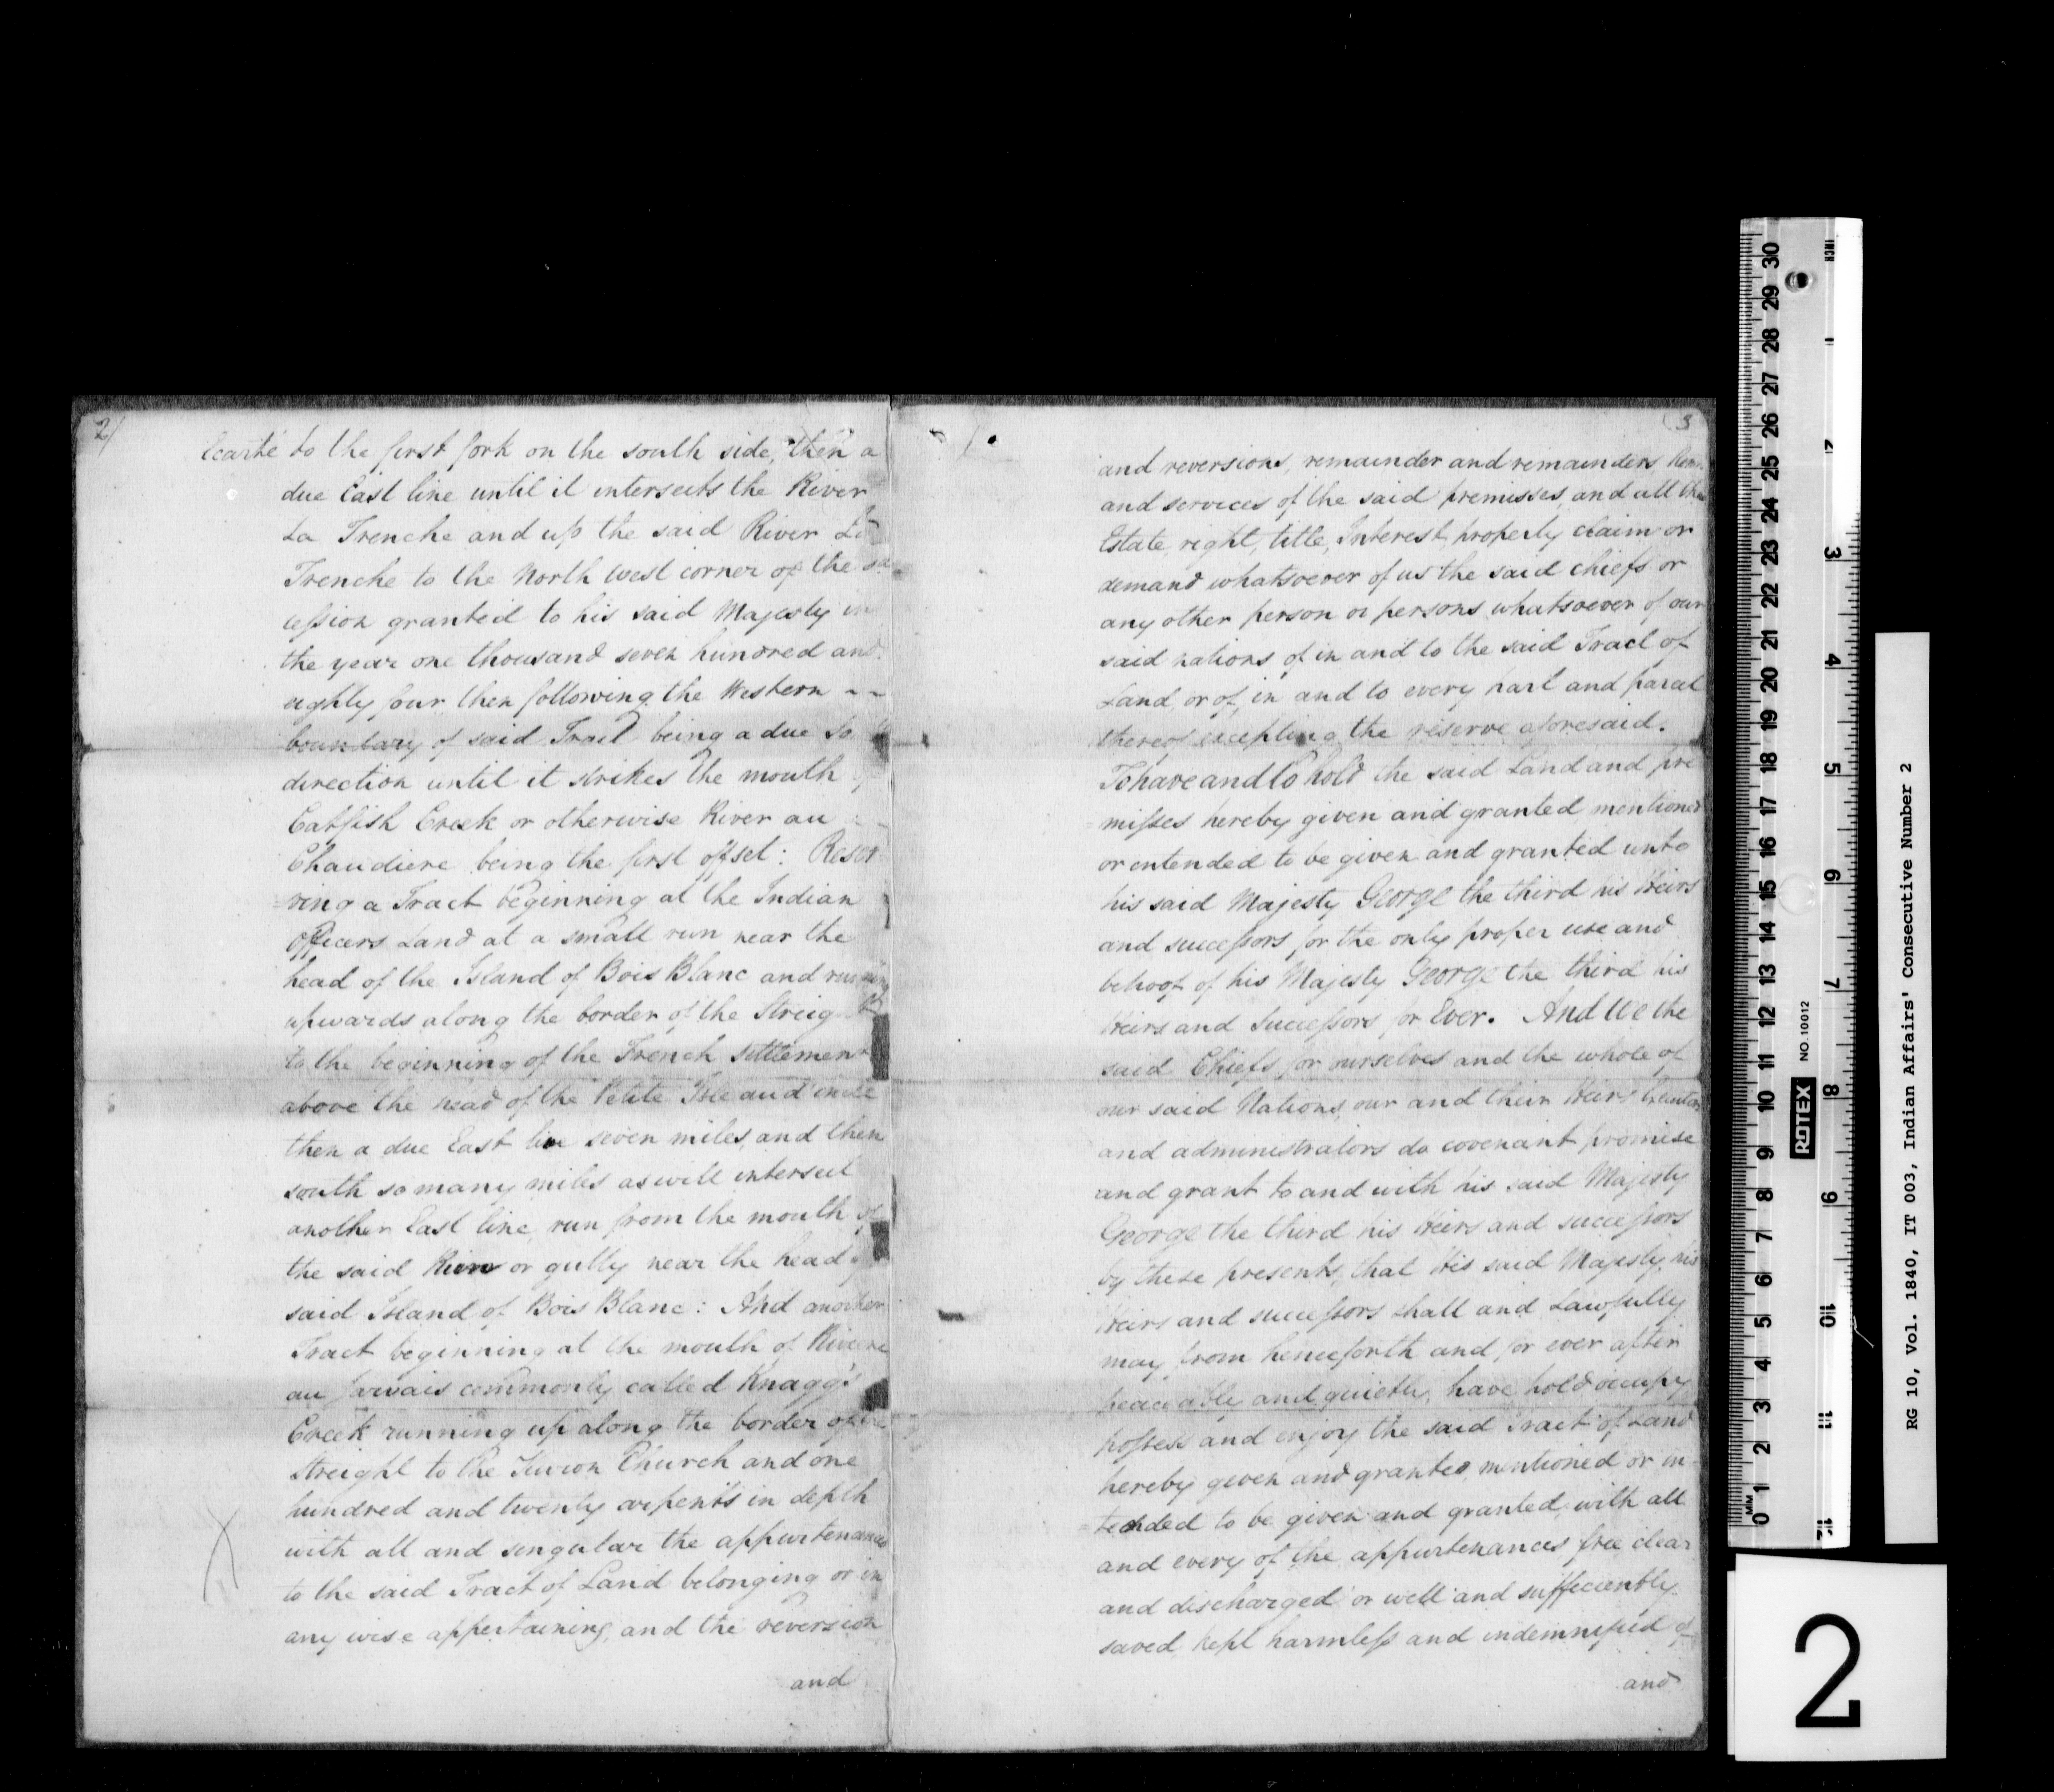 2/
lcarté to the first fork on the south side, then a
due East line until it intersects the River
La Trenche and up the said River La
Trenche to the North West corner of the
cession granted to his said Majesty in
the year one thousand seven hundred and
eighty four then following the Western --
boundary of said Tract being a due So
direction until it strikes the mouth of
Catfish Creek or otherwise River au
Chaudiere being the first offset: Reser
ving a Tract beginning at the Indian
Officers Land at a small run near the
head of the Island of Bois Blanc and running
upwards along the border of the Streight
to the beginning of the French settlement
above the head of the Petite Isle au d'inde
then a due East line seven miles, and then
south so many miles as will intersect
another East line, run from the mouth of
the said River or gully near the head of
said Island of Bois Blanc: And another
Tract beginning at the mouth of Riviere
au Jarvais commonly called Knagg's
Creek running up along the border of the
streight to the Huron Church and one
hundred and twenty arpents in depth
with all and singular the appurtenances
to the said Tract of Land belonging or in
any wise appertaining, and the reversion
and
3
and reversions, remainder and remainders,
and services of the said premisses, and all the
Estate, right, title, Interest, property claim or
demand whatsoever of us the said chiefs or
any other person or persons whatsoever of our
said nations of in and to the said Tract of
Land, or of, in and to every part and parcel
thereof excepting the reserve aforesaid.
To have and to hold the said Land and pre
misses hereby given and granted mentioned
or entended to be given and granted unto
his said Majesty George the third his Heirs
and successors for the only proper use and
behoof of his Majesty George the third his
Heirs and Successors for Ever. And We the
said Chiefs for ourselves and the whole of
our said Nations, our and their Heirs Executors
and administrators do covenant promise
and grant to and with his said Majesty
George the third his Heirs and successors
by these presents, that His said Majesty, his
Heirs and successors shall and Lawfully
may from henceforth and for ever after
peaceably and quietly, have hold occupy
possess and enjoy the said Tract of Land
hereby given and granted, mentioned or in-
tended to be given and granted, with all
and every of the appurtenances free clear
and discharged or well and sufficiently
saved kept harmless and indemnified of
and
30 29 28 27 26 25 24 23 22 21 20 19 18 17 16 15 14 13 12 11 10 9 8 7 6 5 4 3 2 1 0
MM
INCH
1 2 3 4 5 6 7 8 9 10 11 12
ROTEX NO. 10012
RG 10, Vol. 1840, IT 003, Indian Affairs' Consecutive Number 2
2